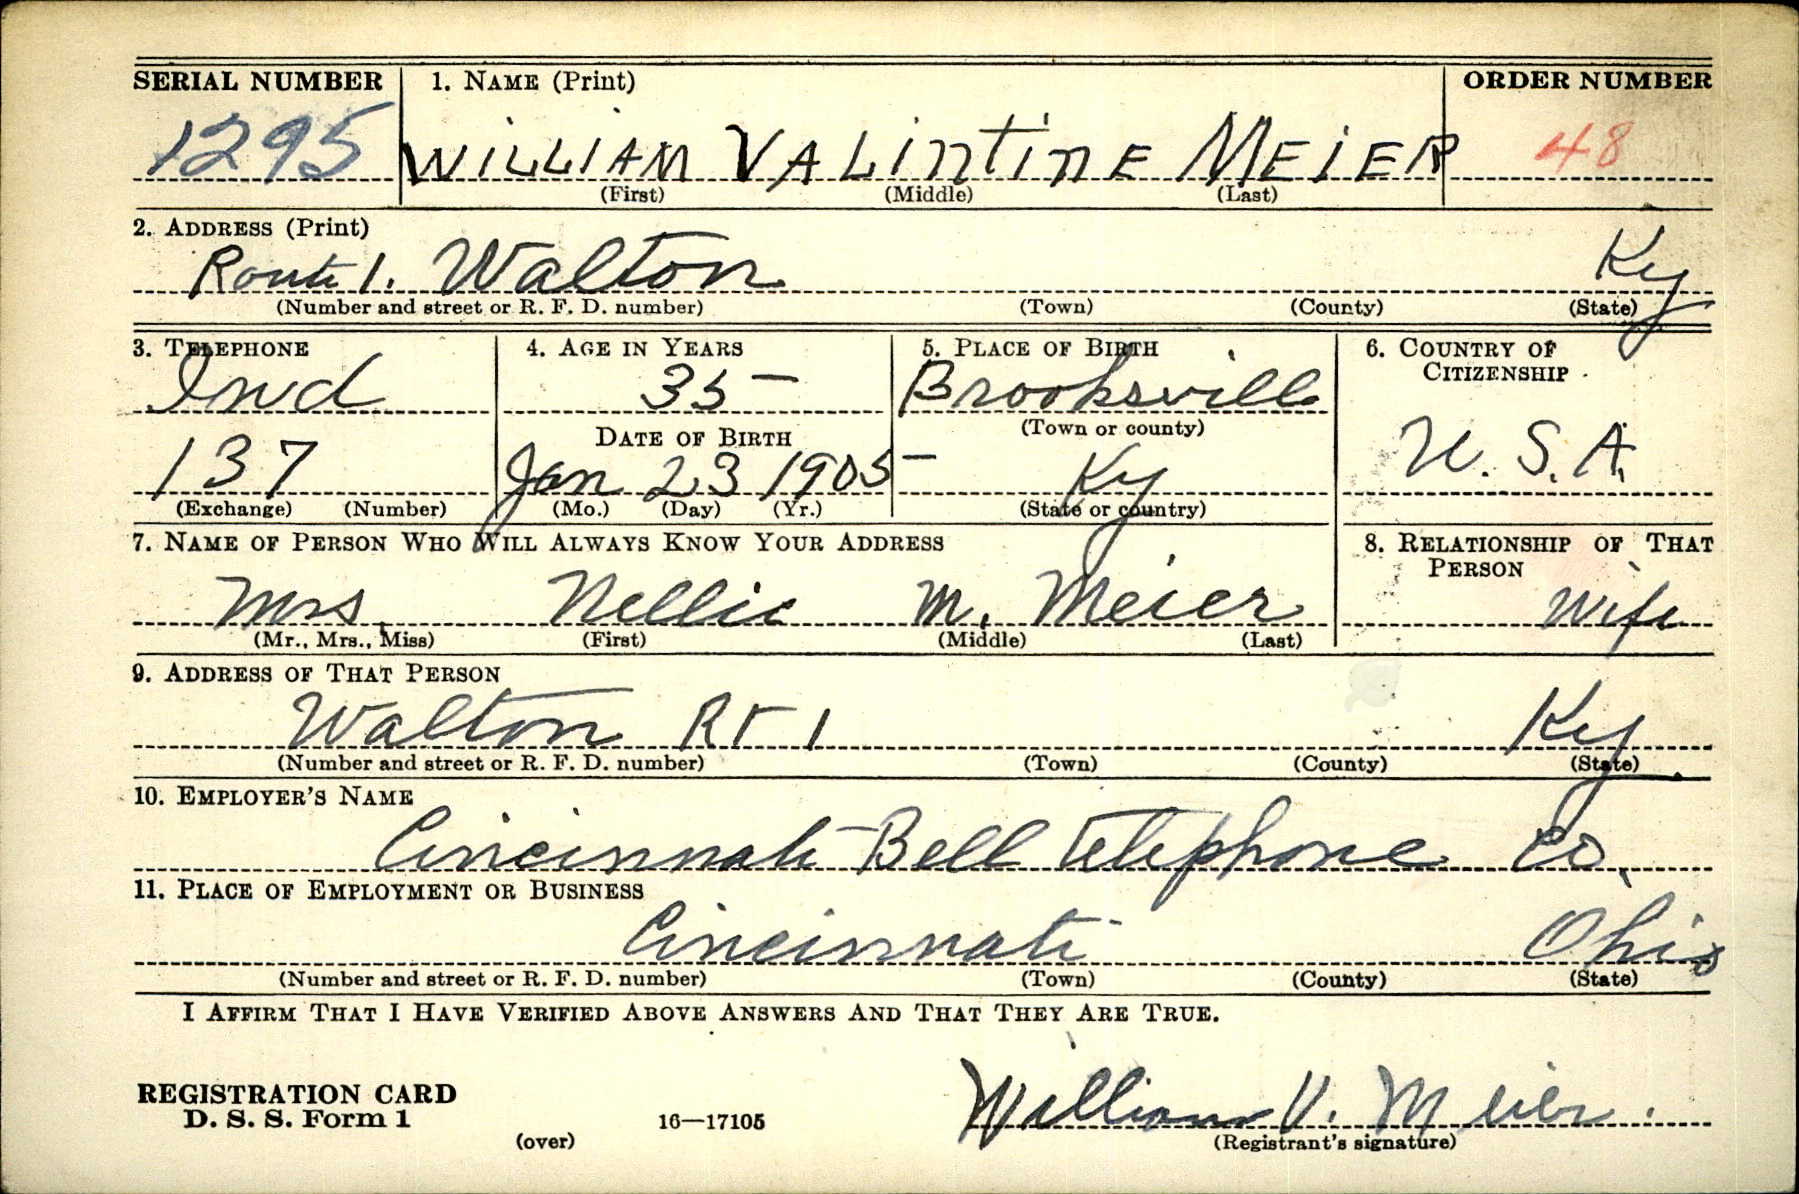 SERIAL NUMBER 1. NAME (Print) ORDER NUMBER
1295 WILLIAM VALINTINE MEIER 48
(First) (Middle) (Last)
2. ADDRESS (Print)
Route 1. Walton Ky
(Number and street or R. F. D. number) (Town) (County) (State)
3. TELEPHONE 4. AGE IN YEARS 5. PLACE OF BIRTH 6. COUNTRY OF
CITIZENSHIP
Ind 35 Brooksville
DATE OF BIRTH (Town or county)
137 Jan 23 1905 Ky U. S. A.
(Exchange) (Number) (Mo.) (Day) (Yr.) (State or country)
7. NAME OF PERSON WHO WILL ALWAYS KNOW YOUR ADDRESS 8. RELATIONSHIP OF THAT
PERSON
Mrs. Nellie M. Meier Wife
(Mr., Mrs., Miss) (First) (Middle) (Last)
9. ADDRESS OF THAT PERSON
Walton Rt 1 Ky
(Number and street or R. F. D. number) (Town) (County) (State)
10. EMPLOYER'S NAME
Cincinnati Bell Telephone Co.
11. PLACE OF EMPLOYMENT OR BUSINESS
Cincinnati Ohio
(Number and street or R. F. D. number) (Town) (County) (State)
I AFFIRM THAT I HAVE VERIFIED ABOVE ANSWERS AND THAT THEY ARE TRUE.
REGISTRATION CARD
D. S. S. Form 1 16—17105 William V. Meier.
(over) (Registrant's signature)